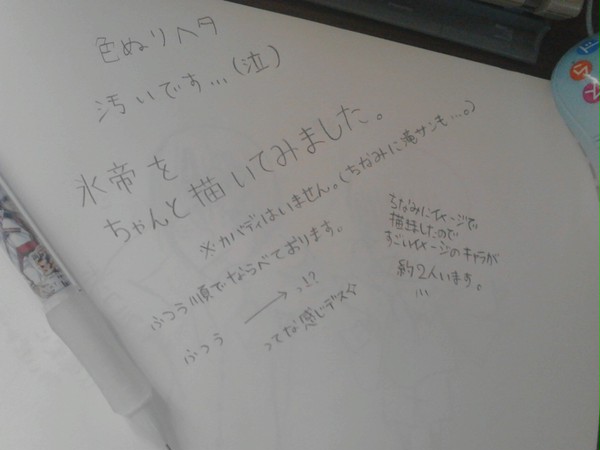 色ぬりヘタ
汚いです…(泣)
氷帝を
ちゃんと描いてみました。
※カバディはいません。(ちなみに滝サンも…。)
ふつう順でならべております。
ふつう → っ!?
ってな感じデス☆
ちなみにイメージで
描写したので
すごいイメージのキャラが
約2人います。
…